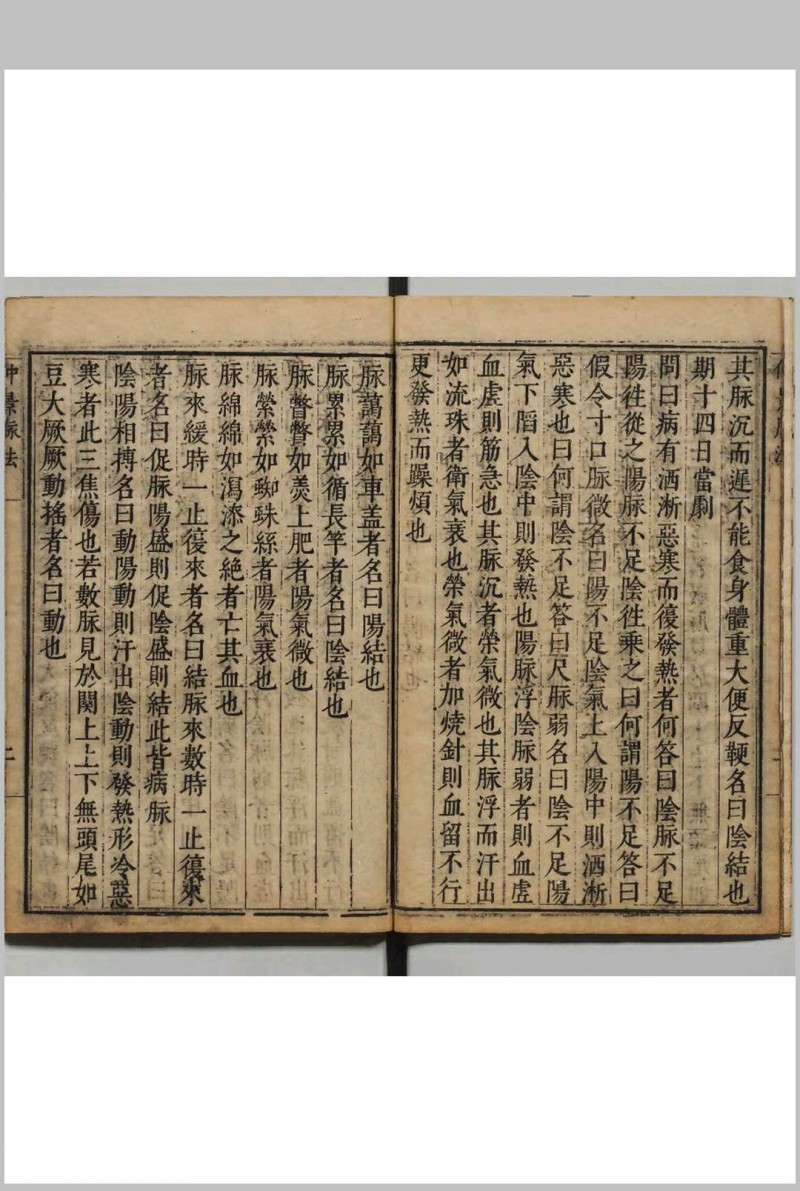 其脉沉而遲不能食身體重大便反鞕名曰陰結也
期十四日當劇
問曰病有洒淅惡寒而復發熱者何答曰陰脉不足
陽徃從之陽脉不足陰徃乘之曰何謂陽不足答曰
假令寸口脉微名曰陽不足陰氣上入陽中則洒淅
惡寒也曰何謂陰不足答曰尺脉弱名曰陰不足陽
氣下䧟入陰中則發熱也陽脉浮陰脉弱者則血虛
血虛則筋急也其脉沉者榮氣微也其脉浮而汗出
如流珠者衛氣衰也榮氣微者加燒針則血留不行
更發熱而躁煩也
脉藹藹如車盖者名曰陽結也
脉累累如循長竿者名曰陰結也
脉瞥瞥如羮上肥者陽氣微也
脉縈縈如蜘蛛絲者陽氣衰也
脉綿綿如瀉漆之絕者亡其血也
脉來緩時一止復來者名曰結脉來數時一止復來
者名曰促脉陽盛則促陰盛則結此皆病脉
陰陽相搏名曰動陽動則汗出陰動則發熱形冷惡
寒者此三焦傷也若數脉見於関上上下無頭尾如
豆大厥厥動搖者名曰動也
仲景脉法
二